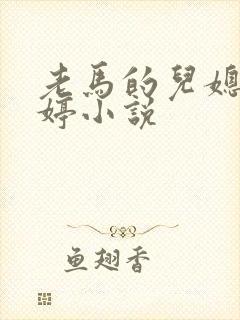 老馬的兒媳
婷小説
鱼翅香